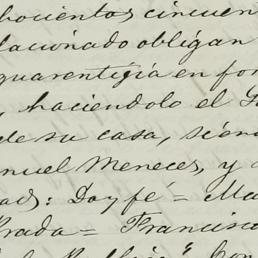 hocientos cincuen
lacionado obligan
guarentigia en for
, haciendolo el
de su casa, sien
nuel Meneces, y
: Doy fé = Ma
Prada = Francisco